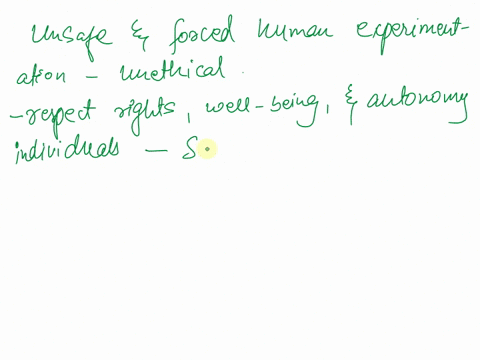 Unsafe & forced human experiment-
ation - unethical.
- respect rights, well-being, & autonomy
individuals — S